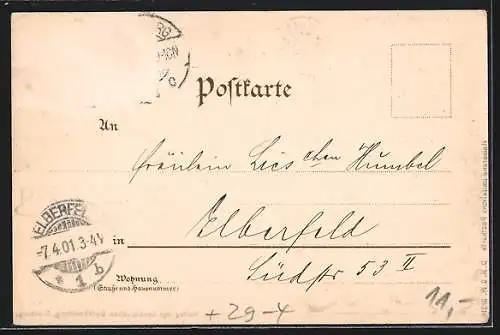 Postkarte
An
Fräulein Lieschen Humbel
ELBERFE
-7.4.01.3-4N
* 1 b
in
Elberfeld
Südstr 53 II
Wohnung
(Straße und Hausnummer)
+29-4
11,-